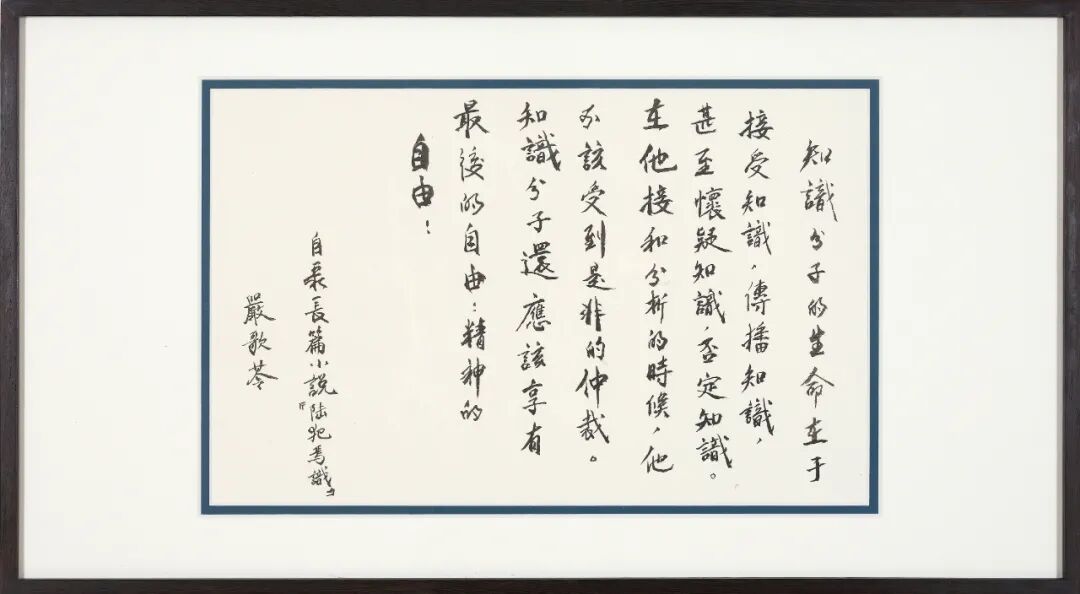 知識分子的生命在于
接受知識,傳播知識,
甚至懷疑知識,否定知識。
在他接和分析的時候,他
不該受到是非的仲裁。
知識分子還應該享有
最後的自由:精神的
自由:
自長篇小説『陸犯焉識』
嚴歌苓